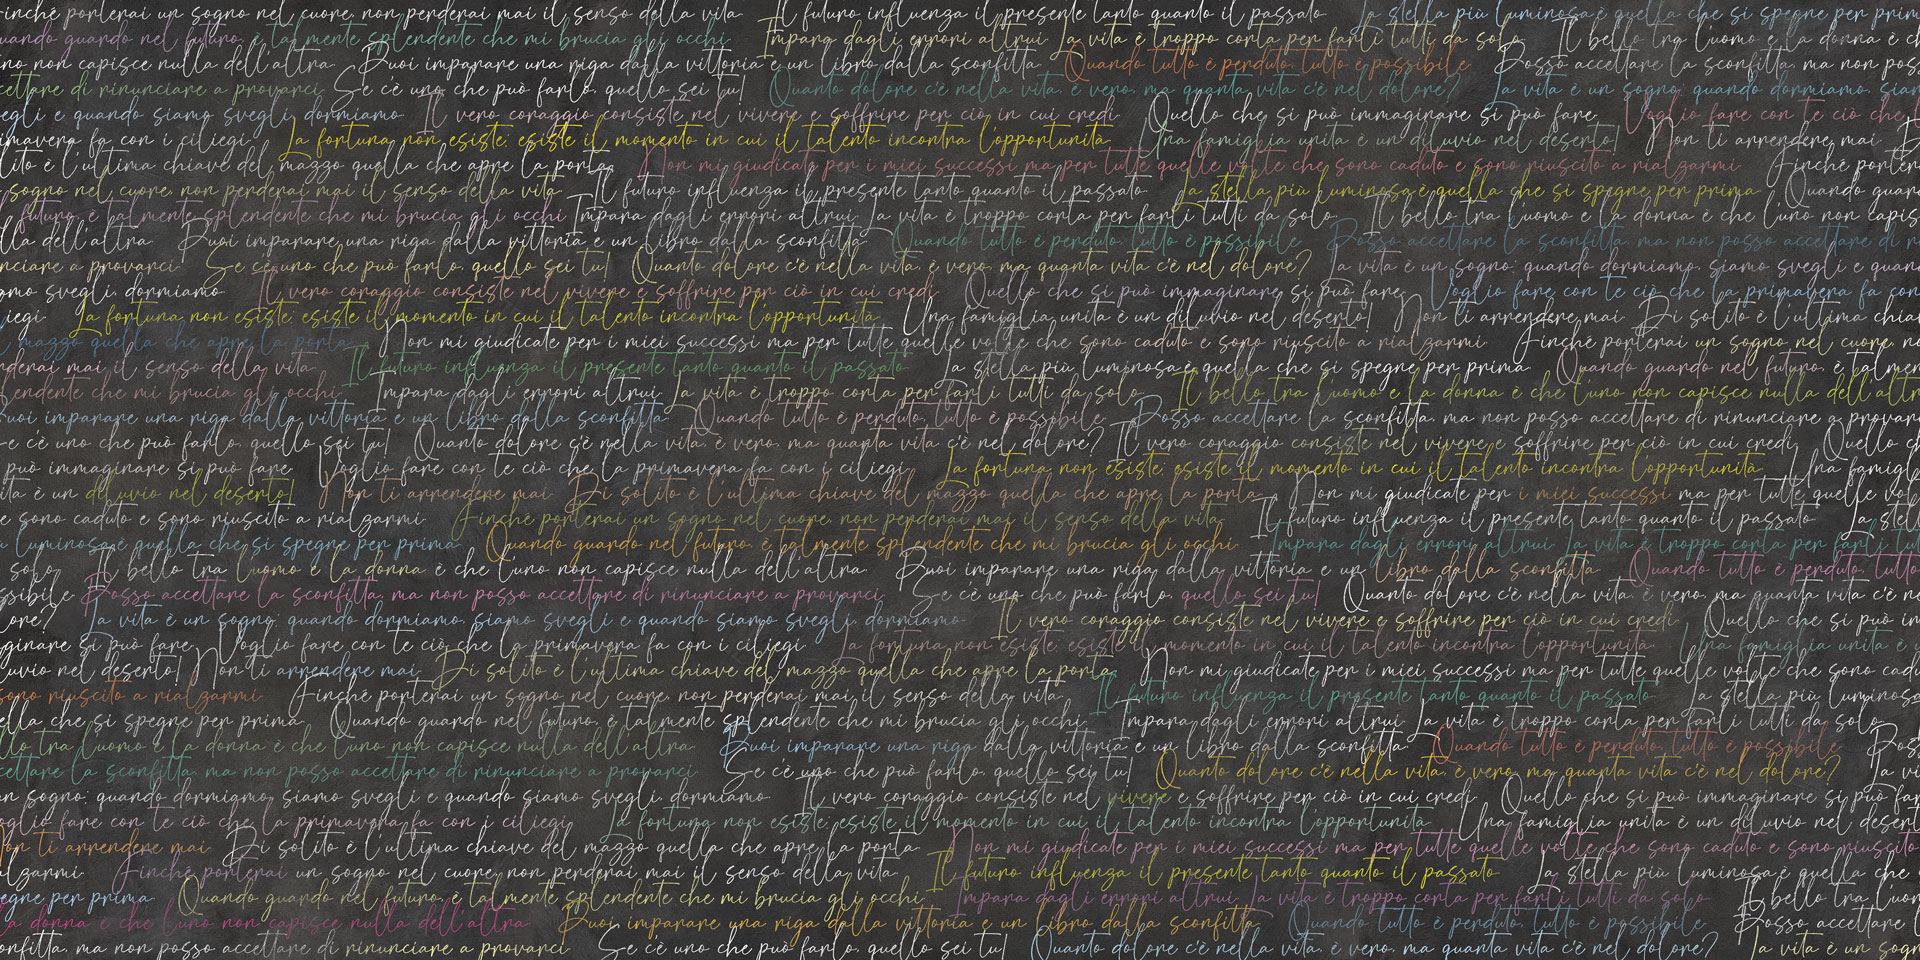 Finchè porterai un sogno nel cuore, non perderai mai il senso della vita Il futuro influenza il presente tanto quanto il passato La stella più luminosa è quella che si spegne per prima
quando quando nel futuro, è talmente splendente che mi brucia gli occhi Impara dagli errori altrui. La vita è troppo corta per farli tutti da solo. Il bello tra l'uomo e la donna è che
uno non capisce nulla dell'altra Puoi imparare una riga dalla vittoria e un libro dalla sconfitta Quando tutto è perduto, tutto è possibile Posso accettare la sconfitta, ma non posso
accettare di rinunciare a provarci Se c'è uno che può farlo, quello sei tu! Quanto dolore c'è nella vita, è vero, ma quanta vita c'è nel dolore? La vita è un sogno: quando dormiamo, siamo
svegli e quando siamo svegli, dormiamo Il vero coraggio consiste nel vivere e soffrire per ciò in cui credi Quello che si può immaginare si può fare. Voglio fare con te ciò che
primavera fa con i ciliegi. La fortuna non esiste: esiste il momento in cui il talento incontra l'opportunità Una famiglia unita è un diluvio nel deserto! Non ti arrendere mai
solito è l'ultima chiave del mazzo quella che apre la porta Non mi giudicate per i miei successi ma per tutte quelle volte che sono caduto e sono riuscito a rialzarmi Finchè porterai
sogno nel cuore, non perderai mai il senso della vita Il futuro influenza il presente tanto quanto il passato La stella più luminosa è quella che si spegne per prima Quando quando
futuro, è talmente splendente che mi brucia gli occhi Impara dagli errori altrui. La vita è troppo corta per farli tutti da solo. Il bello tra l'uomo e la donna è che l'uno non capisce
nulla dell'altra Puoi imparare una riga dalla vittoria e un libro dalla sconfitta Quando tutto è perduto, tutto è possibile Posso accettare la sconfitta, ma non posso accettare di
rinunciare a provarci Se c'è uno che può farlo, quello sei tu! Quanto dolore c'è nella vita, è vero, ma quanta vita c'è nel dolore? La vita è un sogno: quando dormiamo, siamo svegli e quando
siamo svegli, dormiamo Il vero coraggio consiste nel vivere e soffrire per ciò in cui credi Quello che si può immaginare si può fare. Voglio fare con te ciò che la primavera fa con
i ciliegi. La fortuna non esiste: esiste il momento in cui il talento incontra l'opportunità Una famiglia unita è un diluvio nel deserto! Non ti arrendere mai Di solito è l'ultima chiave
mazzo quella che apre la porta Non mi giudicate per i miei successi ma per tutte quelle volte che sono caduto e sono riuscito a rialzarmi Finchè porterai un sogno nel cuore, non
perderai mai il senso della vita Il futuro influenza il presente tanto quanto il passato La stella più luminosa è quella che si spegne per prima Quando quando nel futuro, è talmente
splendente che mi brucia gli occhi Impara dagli errori altrui. La vita è troppo corta per farli tutti da solo. Il bello tra l'uomo e la donna è che l'uno non capisce nulla dell'altra
Puoi imparare una riga dalla vittoria e un libro dalla sconfitta Quando tutto è perduto, tutto è possibile Posso accettare la sconfitta, ma non posso accettare di rinunciare a provarci
Se c'è uno che può farlo, quello sei tu! Quanto dolore c'è nella vita, è vero, ma quanta vita c'è nel dolore? Il vero coraggio consiste nel vivere e soffrire per ciò in cui credi Quello che
può immaginare si può fare Voglio fare con te ciò che la primavera fa con i ciliegi. La fortuna non esiste: esiste il momento in cui il talento incontra l'opportunità Una famiglia
unita è un diluvio nel deserto! Non ti arrendere mai Di solito è l'ultima chiave del mazzo quella che apre la porta Non mi giudicate per i miei successi ma per tutte quelle volte
che sono caduto e sono riuscito a rialzarmi Finchè porterai un sogno nel cuore, non perderai mai il senso della vita Il futuro influenza il presente tanto quanto il passato La stella
luminosa è quella che si spegne per prima Quando quando nel futuro, è talmente splendente che mi brucia gli occhi Impara dagli errori altrui. La vita è troppo corta per farli tutti
solo. Il bello tra l'uomo e la donna è che l'uno non capisce nulla dell'altra Puoi imparare una riga dalla vittoria e un libro dalla sconfitta Quando tutto è perduto, tutto
possibile Posso accettare la sconfitta, ma non posso accettare di rinunciare a provarci Se c'è uno che può farlo, quello sei tu! Quanto dolore c'è nella vita, è vero, ma quanta vita c'è nel
dolore? La vita è un sogno: quando dormiamo, siamo svegli e quando siamo svegli, dormiamo Il vero coraggio consiste nel vivere e soffrire per ciò in cui credi Quello che si può
immaginare si può fare. Voglio fare con te ciò che la primavera fa con i ciliegi La fortuna non esiste: esiste il momento in cui il talento incontra l'opportunità Una famiglia unita è un
diluvio nel deserto! Non ti arrendere mai Di solito è l'ultima chiave del mazzo quella che apre la porta Non mi giudicate per i miei successi ma per tutte quelle volte che sono caduto
sono riuscito a rialzarmi Finchè porterai un sogno nel cuore, non perderai mai il senso della vita Il futuro influenza il presente tanto quanto il passato La stella più luminosa
quella che si spegne per prima Quando quando nel futuro, è talmente splendente che mi brucia gli occhi Impara dagli errori altrui. La vita è troppo corta per farli tutti da solo.
bello tra l'uomo e la donna è che l'uno non capisce nulla dell'altra Puoi imparare una riga dalla vittoria e un libro dalla sconfitta Quando tutto è perduto, tutto è possibile Posso
accettare la sconfitta, ma non posso accettare di rinunciare a provarci Se c'è uno che può farlo, quello sei tu! Quanto dolore c'è nella vita, è vero, ma quanta vita c'è nel dolore? La vita
un sogno: quando dormiamo, siamo svegli e quando siamo svegli, dormiamo Il vero coraggio consiste nel vivere e soffrire per ciò in cui credi Quello che si può immaginare si può fare
Voglio fare con te ciò che la primavera fa con i ciliegi La fortuna non esiste: esiste il momento in cui il talento incontra l'opportunità Una famiglia unita è un diluvio nel deserto!
Non ti arrendere mai Di solito è l'ultima chiave del mazzo quella che apre la porta Non mi giudicate per i miei successi ma per tutte quelle volte che sono caduto e sono riuscito
rialzarmi Finchè porterai un sogno nel cuore, non perderai mai il senso della vita Il futuro influenza il presente tanto quanto il passato La stella più luminosa è quella che
spegne per prima Quando quando nel futuro, è talmente splendente che mi brucia gli occhi Impara dagli errori altrui. La vita è troppo corta per farli tutti da solo Il bello tra l'uomo
la donna è che l'uno non capisce nulla dell'altra Puoi imparare una riga dalla vittoria e un libro dalla sconfitta Quando tutto è perduto, tutto è possibile Posso accettare la
sconfitta, ma non posso accettare di rinunciare a provarci Se c'è uno che può farlo, quello sei tu! Quanto dolore c'è nella vita, è vero, ma quanta vita c'è nel dolore? La vita è un sogno